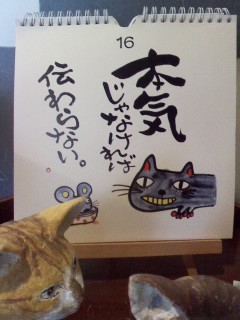 16
本気
じゃなければ
伝わらない。